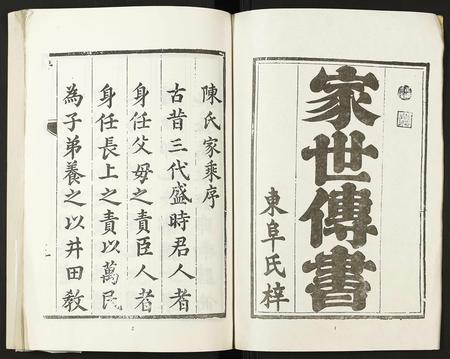 家世傳書
東阜氏梓
1
陳氏家乘序
古昔三代盛時君人者
身任父母之責臣人者
身任長上之責以萬民
為子弟養之以井田教
2